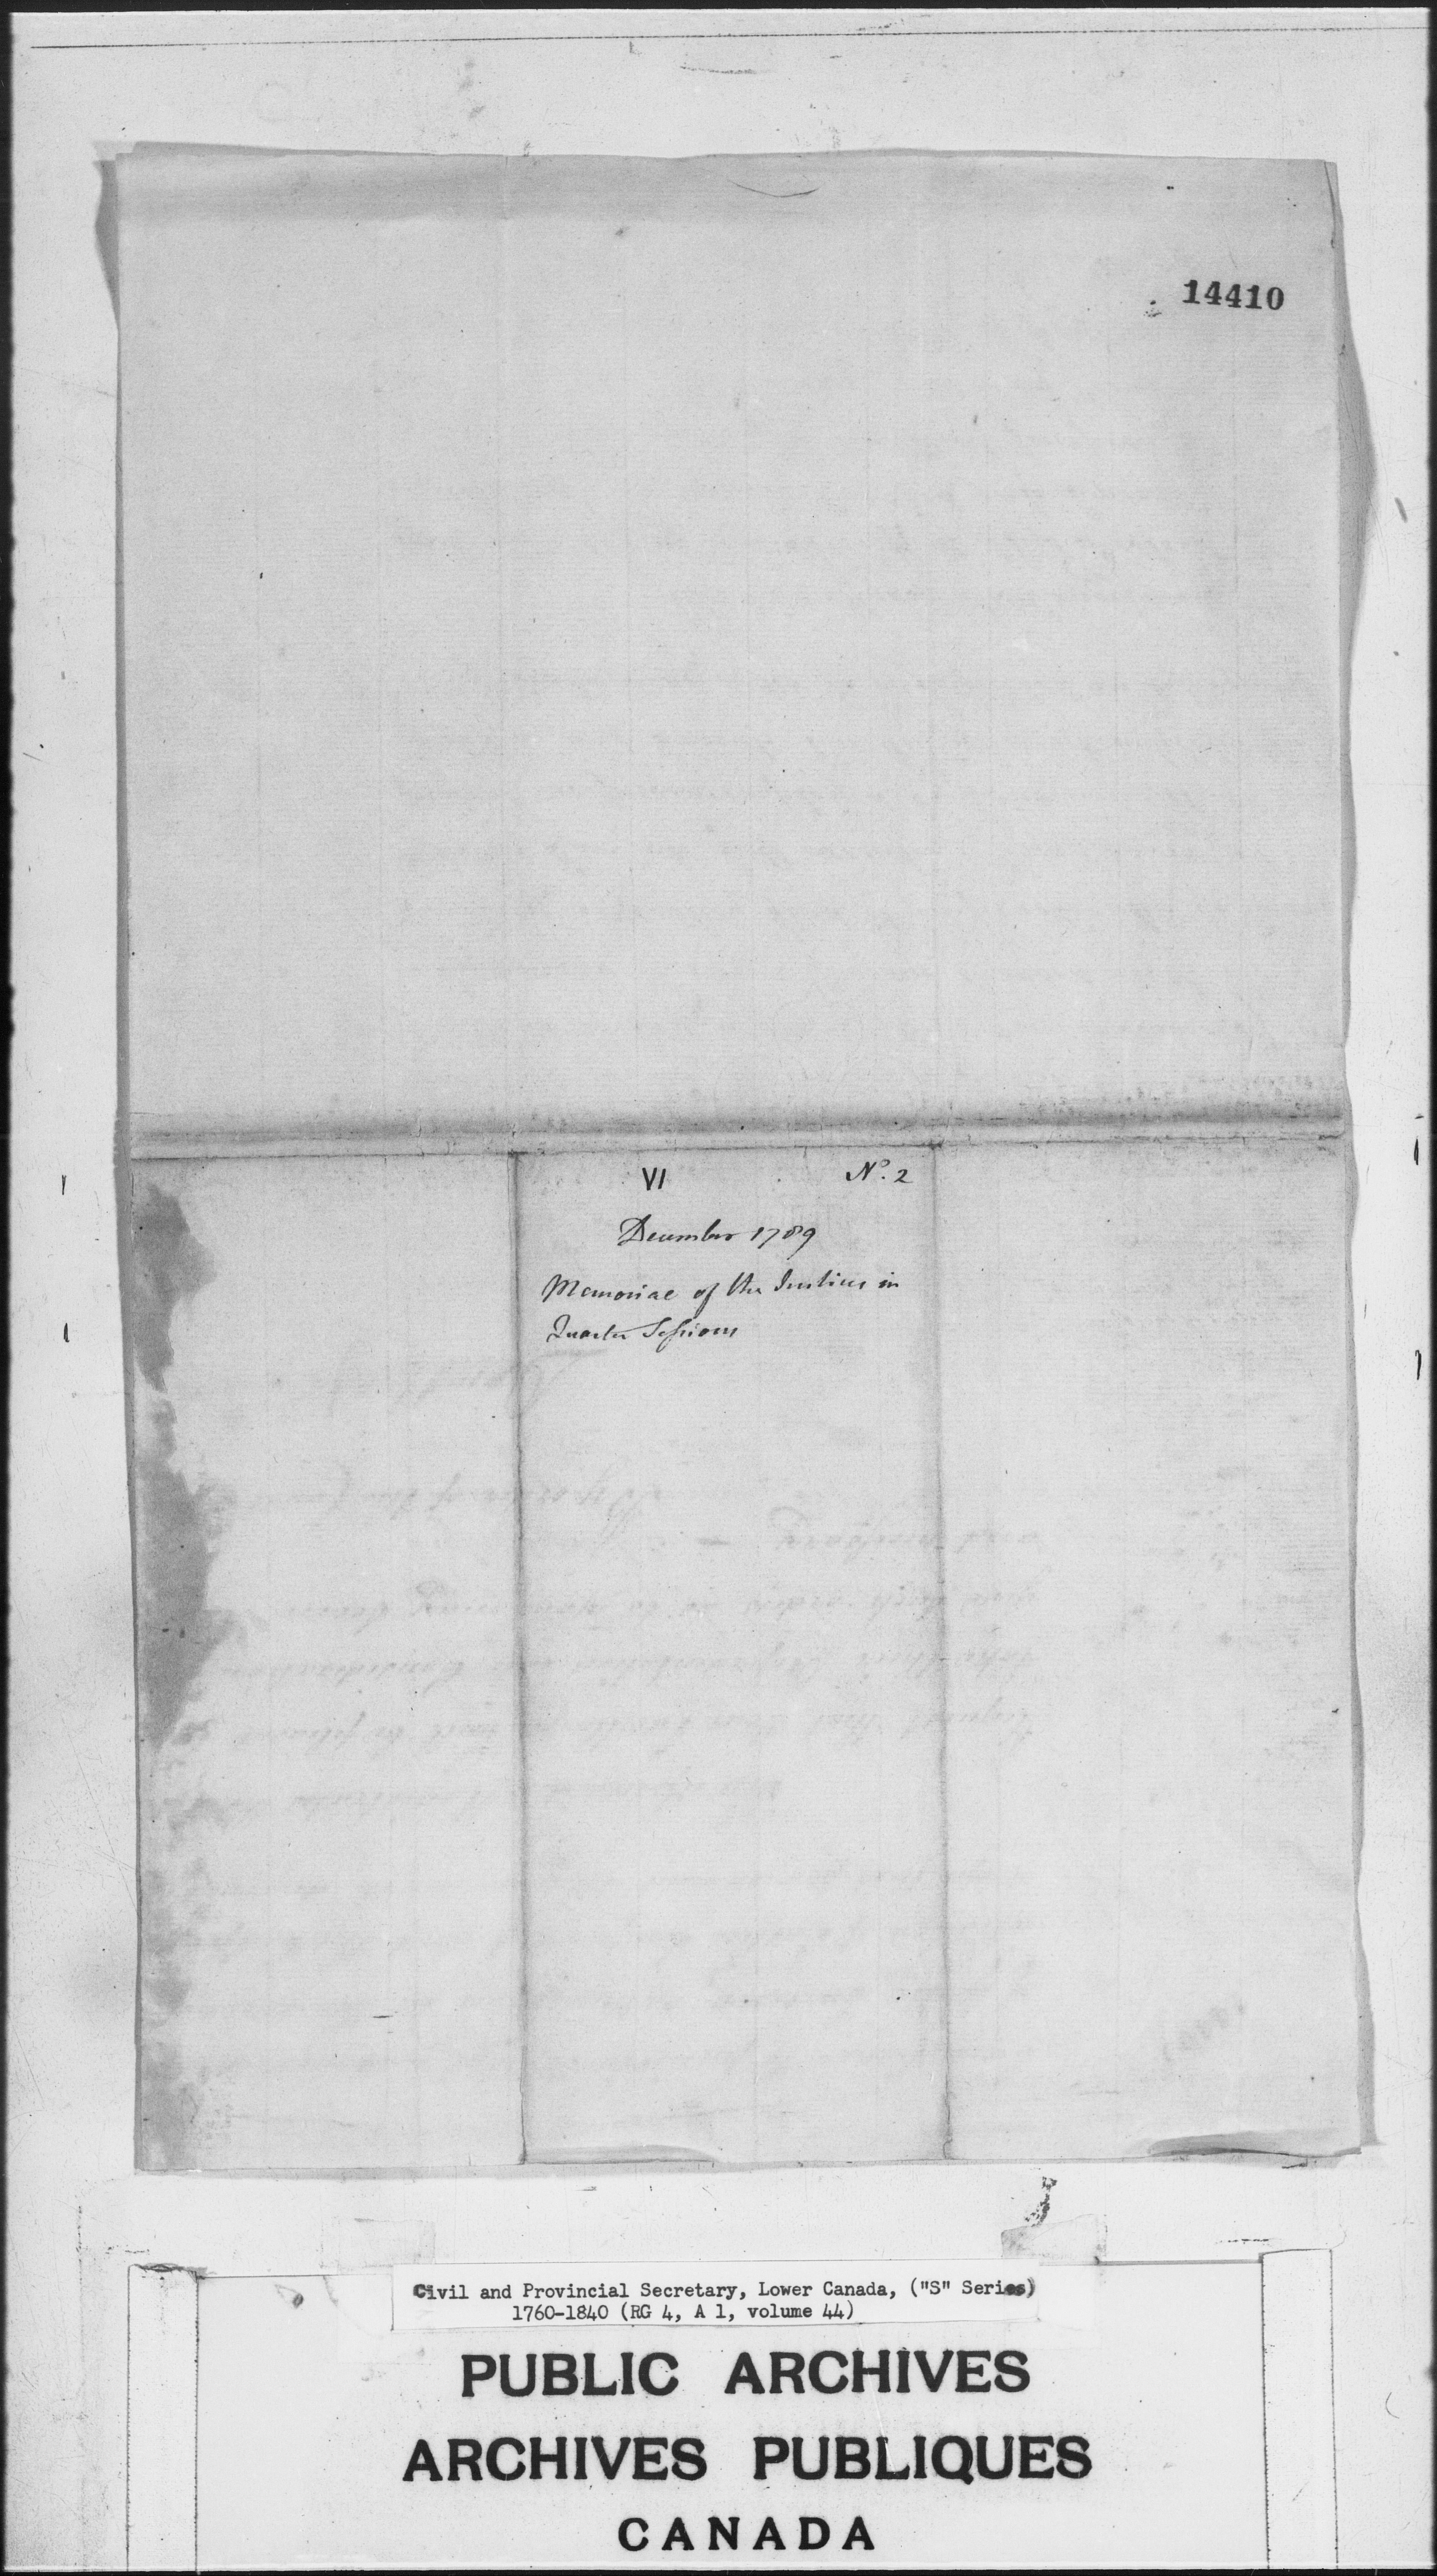 14410
VI N.o 2
December 1789
Memorial of the Justices in
Quarter Sessions
Civil and Provincial Secretary, Lower Canada, ("S" Series)
1760-1840 (RG 4, A 1, volume 44)
PUBLIC ARCHIVES
ARCHIVES PUBLIQUES
CANADA